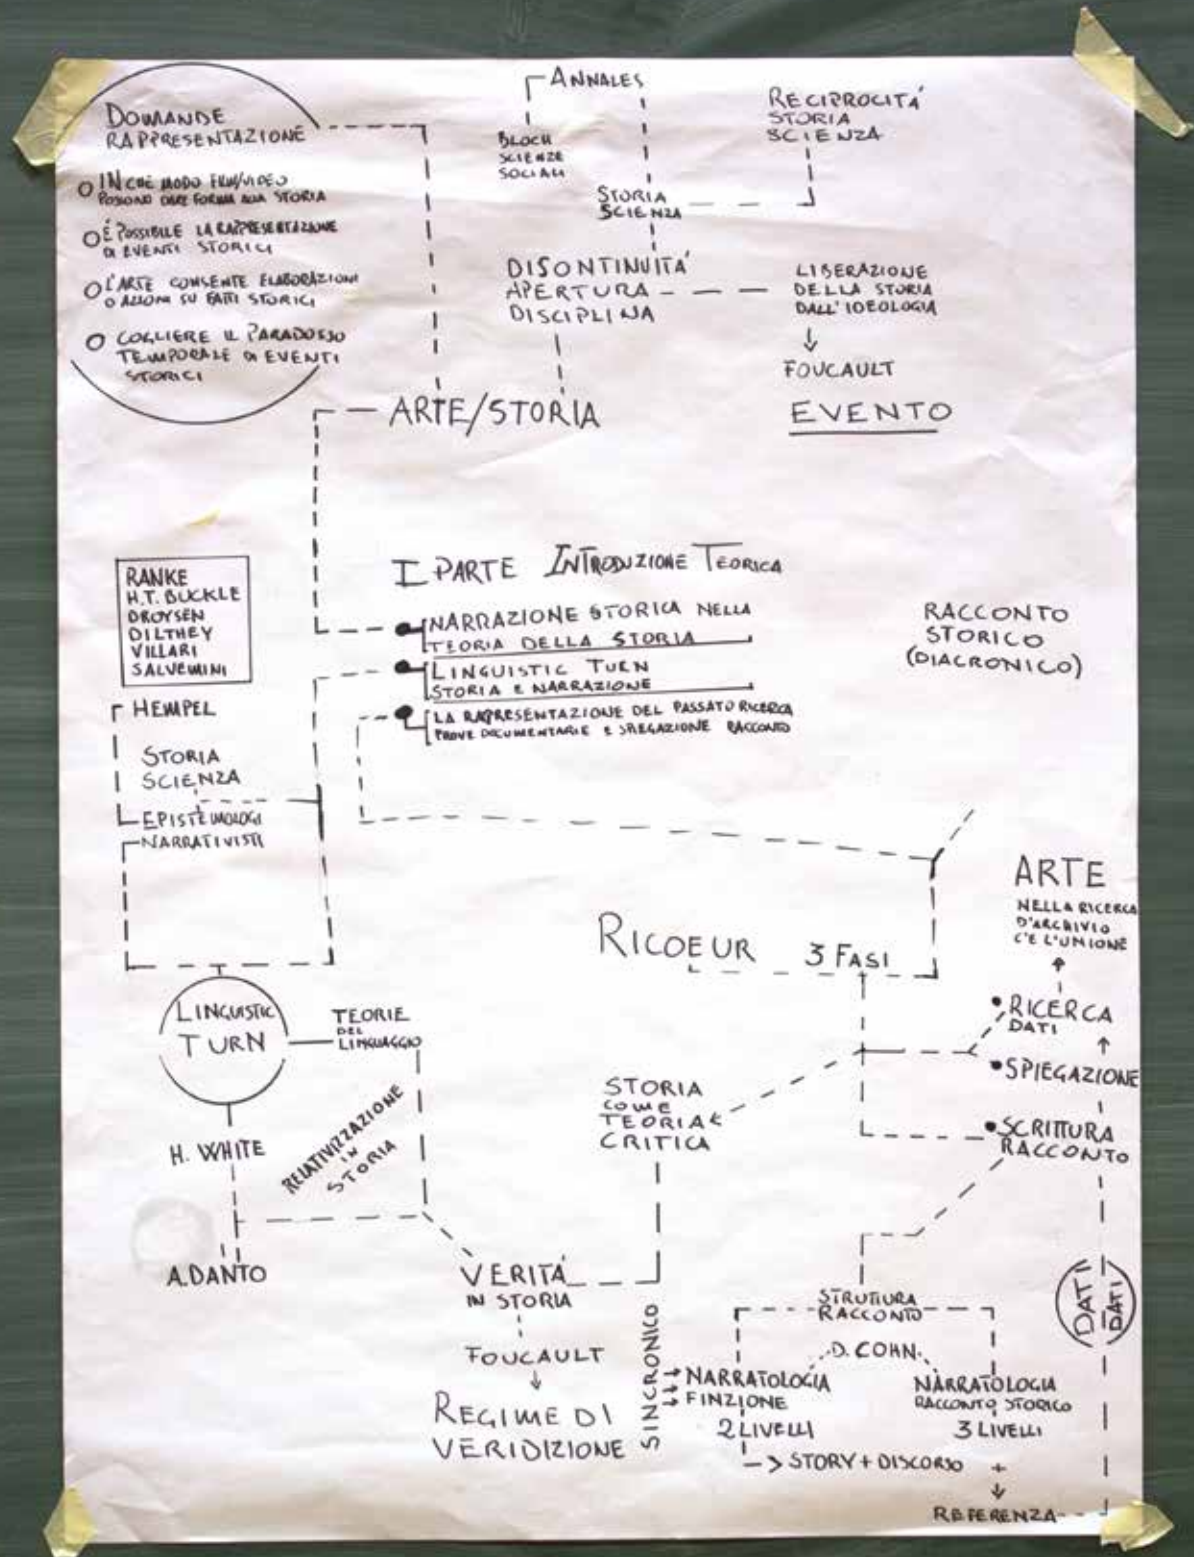 DOMANDE
RAPPRESENTAZIONE
IN CHE MODO FILM/VIDEO
POSSONO DARE FORMA ALLA STORIA
È POSSIBILE LA RAPPRESETAZIONE
DI EVENTI STORICI
L'ARTE CONSENTE ELABORAZIONI
O AZIONI SU FATTI STORICI
COGLIERE IL PARADOSSO
TEMPORALE DI EVENTI
STORICI
ANNALES
BLOCH
SCIENZE
SOCIALI
RECIPROCITÁ
STORIA
SCIENZA
STORIA
SCIENZA
DISONTINUITÁ
APERTURA
DISCIPLINA
LIBERAZIONE
DELLA STORIA
DALL'IDEOLOGIA
FOUCAULT
EVENTO
ARTE/STORIA
RANKE
H.T. BUCKLE
DROYSEN
DILTHEY
VILLARI
SALVEMINI
I PARTE INTRODUZIONE TEORICA
NARRAZIONE STORICA NELLA
TEORIA DELLA STORIA
LINGUISTIC TURN
STORIA E NARRAZIONE
LA RAPRESENTAZIONE DEL PASSATO RICERCA
PROVE DOCUMENTARIE E SPIEGAZIONE RACCONTO
RACCONTO
STORICO
(DIACRONICO)
HEMPEL
STORIA
SCIENZA
EPISTEMOLOGI
NARRATIVISTI
LINGUISTIC
TURN
TEORIE
DEL
LINGUAGGIO
H. WHITE
RELATIVIZZAZIONE
IN
STORIA
A.DANTO
RICOEUR 3 FASI
ARTE
NELLA RICERCA
D'ARCHIVIO
C'E L'UNIONE
RICERCA
DATI
SPIEGAZIONE
SCRITTURA
RACCONTO
STORIA
COME
TEORIA
CRITICA
VERITÁ
IN STORIA
FOUCAULT
REGIME DI
VERIDIZIONE
SINCRONICO
STRUTTURA
RACCONTO
D. COHN
NARRATOLOGIA
FINZIONE
2 LIVELLI
NARRATOLOGIA
RACCONTO STORICO
3 LIVELLI
STORY + DISCORSO +
REFERENZA
DATI
DATI